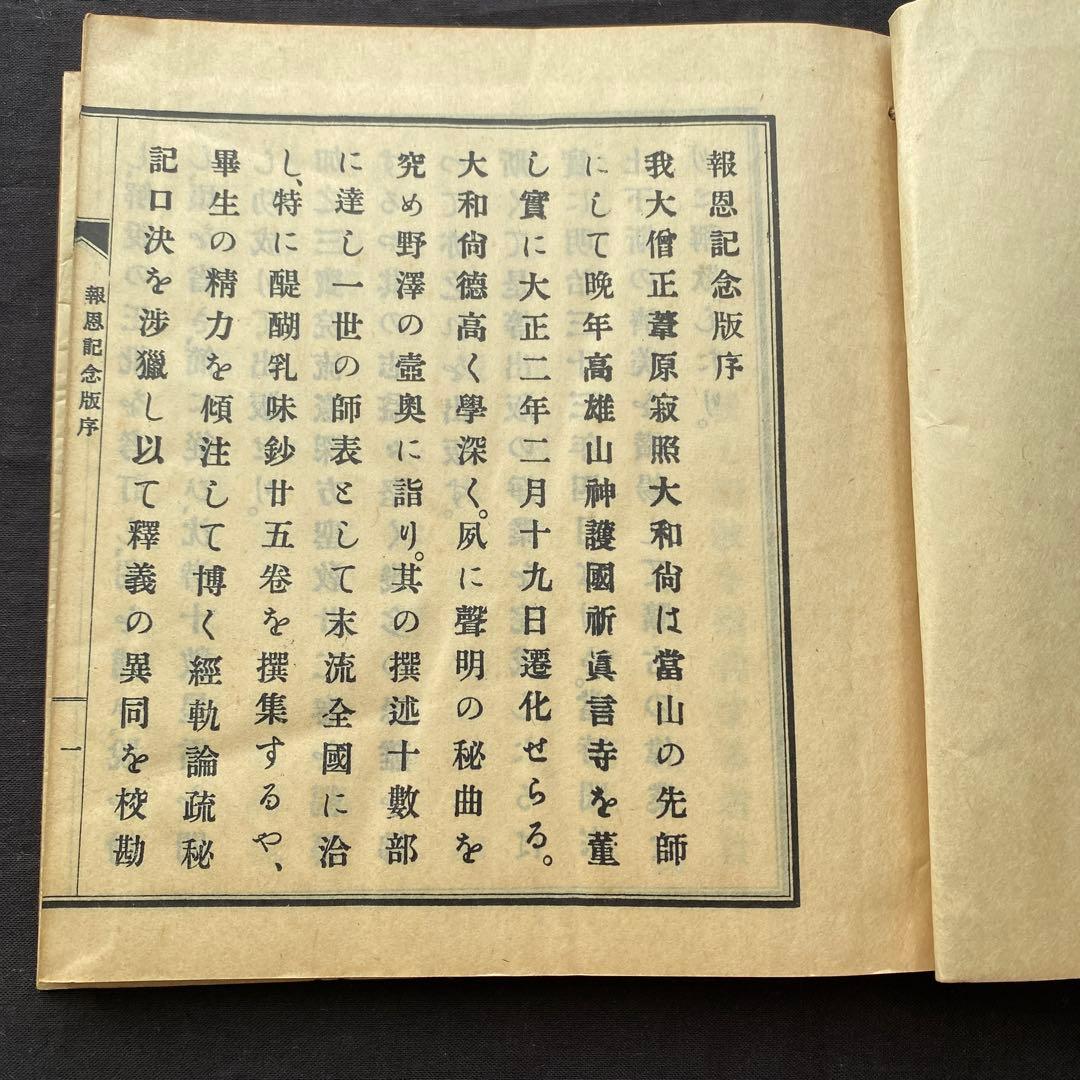 報恩記念版序
我大僧正葦原寂照大和尙は當山の先師
にして晩年高雄山神護國祈眞言寺を董
し實に大正二年二月十九日遷化せらる。
大和尙德高く學深く。夙に聲明の秘曲を
究め野澤の壼奧に詣り。其の撰述十數部
に達し一世の師表として末流全國に洽
し、特に醍醐乳味鈔廿五卷を撰集するや、
畢生の精力を傾注して博く經軌論疏秘
記口決を涉獵し以て釋義の異同を校勘
報恩記念版序
一